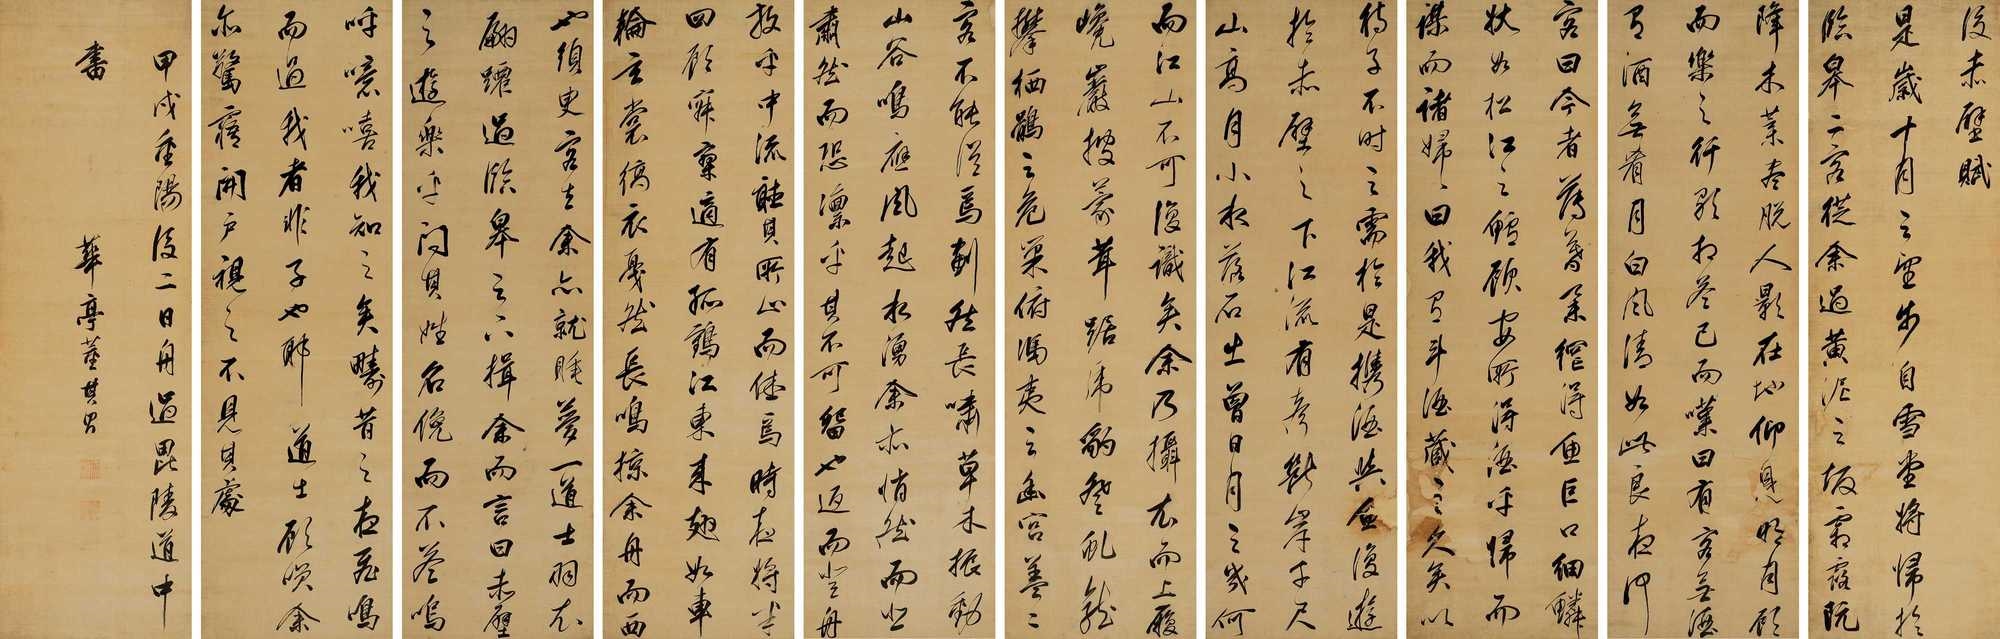 後赤壁賦
是歲十月之望步自雪堂將歸於
臨皋二客從余過黃泥之坂霜露既
降木葉盡脫人影在地仰見明月顧
而樂之行歌相答已而嘆曰有客無酒
有酒無肴月白風清如此良夜何
客曰今者薄暮舉網得魚巨口細鱗
狀如松江之鱸顧安所得酒乎歸而
謀而諸婦婦曰我有斗酒藏之久矣以
待子不時之需於是攜酒與魚復遊
於赤壁之下江流有聲斷岸千尺
山高月小水落石出曾日月之幾何
而江山不可復識矣余乃攝衣而上履
巉巖披蒙茸踞虎豹登虬龍
攀栖鶻之危巢俯馮夷之幽宮蓋二
客不能從焉劃然長嘯草木振動
山谷鳴應風起水湧余亦悄然而悲
肅然而恐凜乎其不可留也返而登舟
放乎中流聽其所止而休焉時夜將半
四顧寂寥適有孤鶴江東來翅如車
輪玄裳縞衣戛然長鳴掠余舟而西
也須臾客去余亦就睡夢一道士羽衣
翩躚過臨皋之下揖余而言曰赤壁
之遊樂乎問其姓名俛而不答嗚
呼噫嘻我知之矣疇昔之夜飛鳴
而過我者非子也耶道士顧笑余
亦驚寤開戶視之不見其處
甲戌重陽後二日舟過毘陵道中
書
華亭董其昌